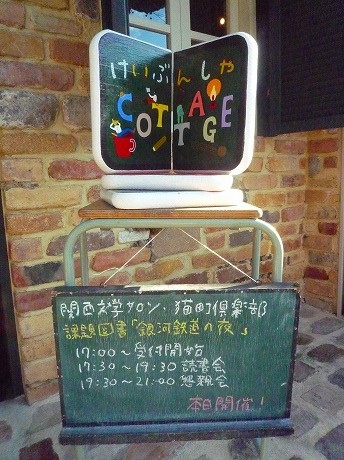 けいぶんしゃ
COTTAGE
関西文学サロン・猫町倶楽部
課題図書「銀河鉄道の夜」
17:00～受付開始
17:30～19:30 読書会
19:30～21:00 懇親会
本日開催!